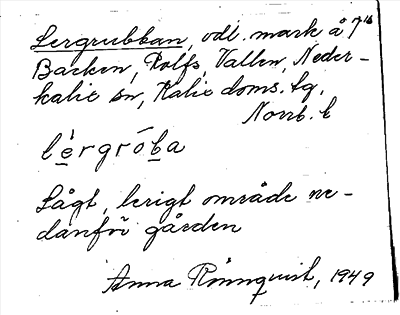 Lergrubban, odl. mark å 7¹⁶
Backen, Rolfs, Vallen, Neder-
kalix sn, Kalix doms. tg,
Norrb. l
lèrgróba
Lågt, lerigt område ne-
danför gården
Anna Rönnquist, 1949